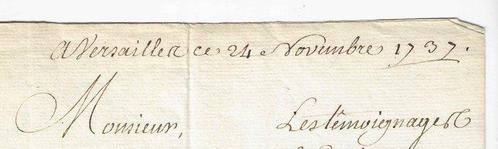 A Versailles ce 24e Novembre 1737.
Monsieur, Les témoignages